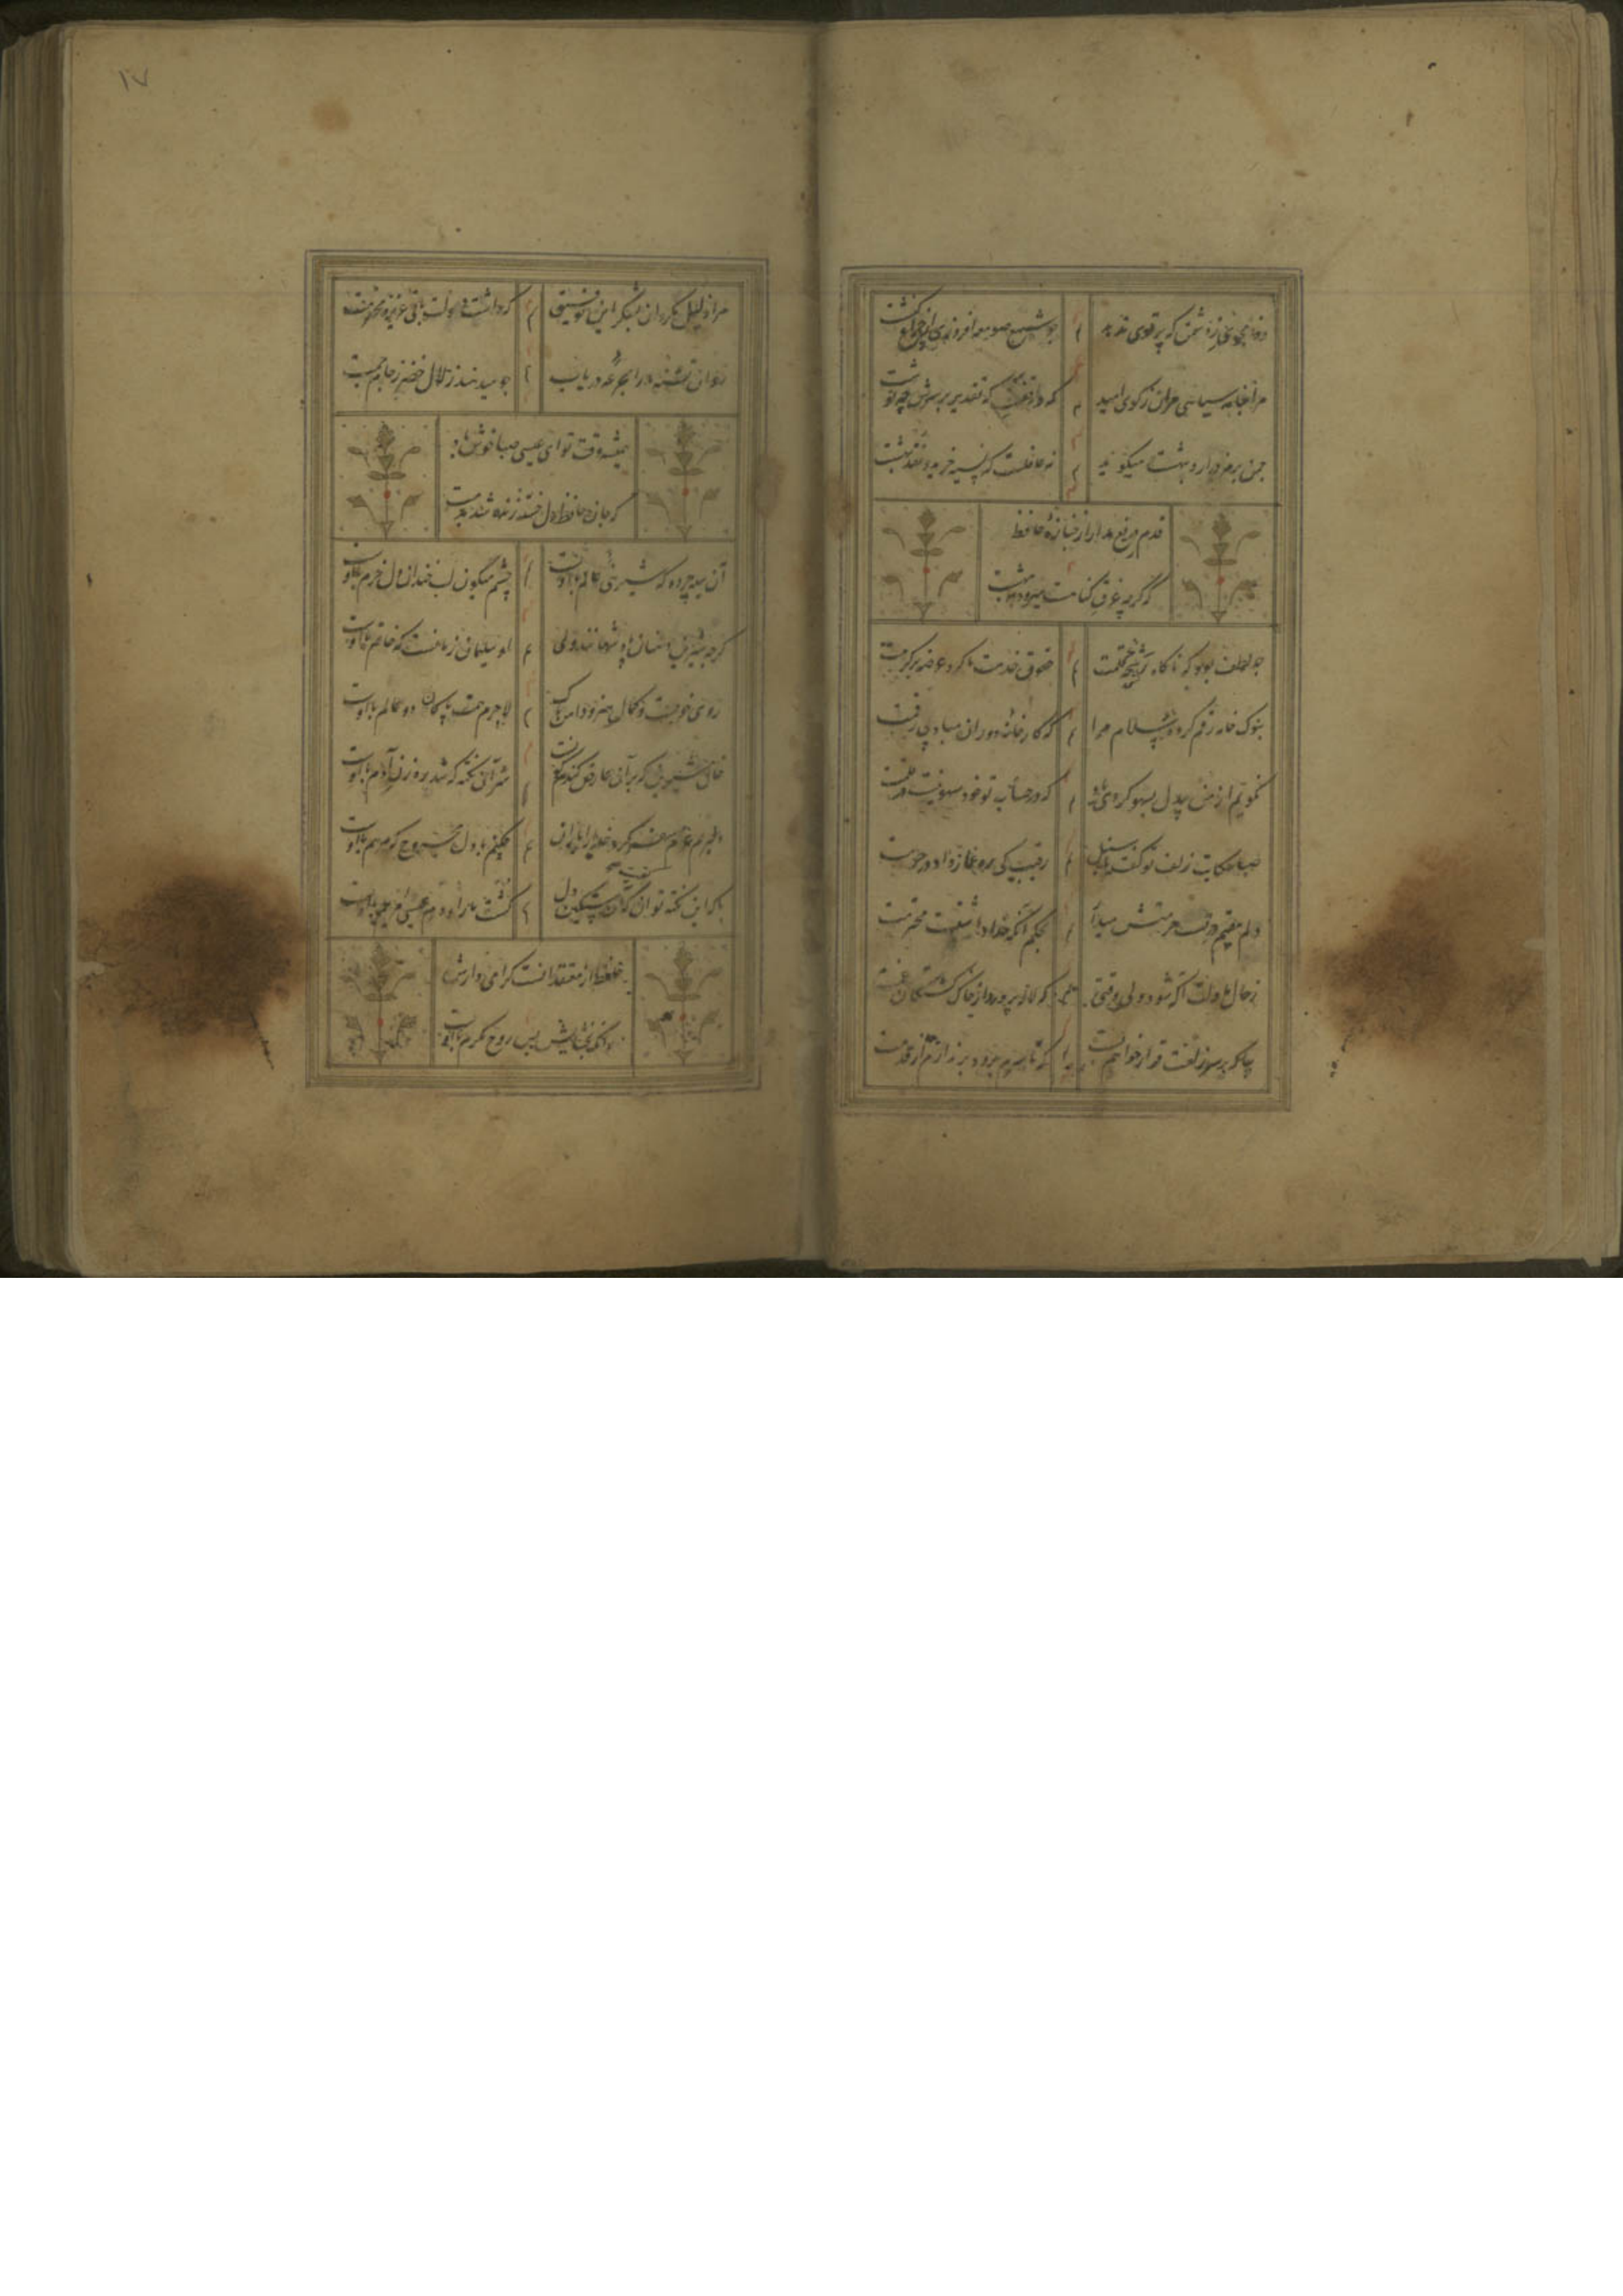 وفا مجوی ز دشمن که پرتوی ندهد
چو شمع صومعه افروزی از چراغ کنشت
مرا بنامه سیاهی مران ز کوی امید
که واقفست که تقدیر بر سرش چه نوشت
چمن اردیبهشت میگوید
نه عاقلست که نسیه خرید و نقد بهشت
قدم دریغ مدار از جنازهٔ حافظ
که گرچه غرق گناهست میرود ببهشت
چه لطف بود که ناگاه رشحهٔ قلمت
حقوق خدمت ما کرد عرضه بر کرمت
بنوک خامه رقم کردهٔ سلام مرا
که کارخانه دوران مباد بی رقمت
نگویم از من بیدل بسهو کردی یاد
که در حساب تو خود سهو نیست در قلمت
صبا حکایت زلف تو گفت با سنبل
رقیب کی ره غماز داد در حرمت
دلم مقیم درتست حرمتش میدار
بحکم آنکه خدا داشتست محترمت
ز حال ما دلت آگه شود ولی وقتی
که لاله بر دمد از خاک کشتگان غمت
بیا که بر سر زلفت قرار خواهم بست
که تا سرم برود بر ندارم از قدمت
مرا ذلیل مگردان بشکر این توفیق
که داشت دولت باقی عزیز و محترمت
روان تشنه ما را بجرعهٔ دریاب
چو میدهند زلال خضر ز جام جمت
همیشه وقت تو ای عیسی صبا خوش باد
که جان حافظ دل خسته زنده شد بدمت
آن سیه چرده که شیرینی عالم با اوست
چشم میگون لب خندان دل خرم با اوست
گرچه شیرین دهنان پادشهانند ولی
او سلیمان زمانست که خاتم با اوست
روی خوبست و کمال هنر و دامن پاک
لاجرم همت پاکان دو عالم با اوست
خال مشکین که بر آن عارض گندم گونست
سر آن نکته که شد رهزن آدم با اوست
دلبرم عزم سفر کرد خدا را یاران
چکنم با دل مجروح که مرهم با اوست
با که این نکته توان گفت که آن سنگین دل
کشت ما را و دم عیسی مریم با اوست
حافظ از معتقدانست گرامی دارش
زانکه بخشایش بس روح مکرم با اوست
۱۷